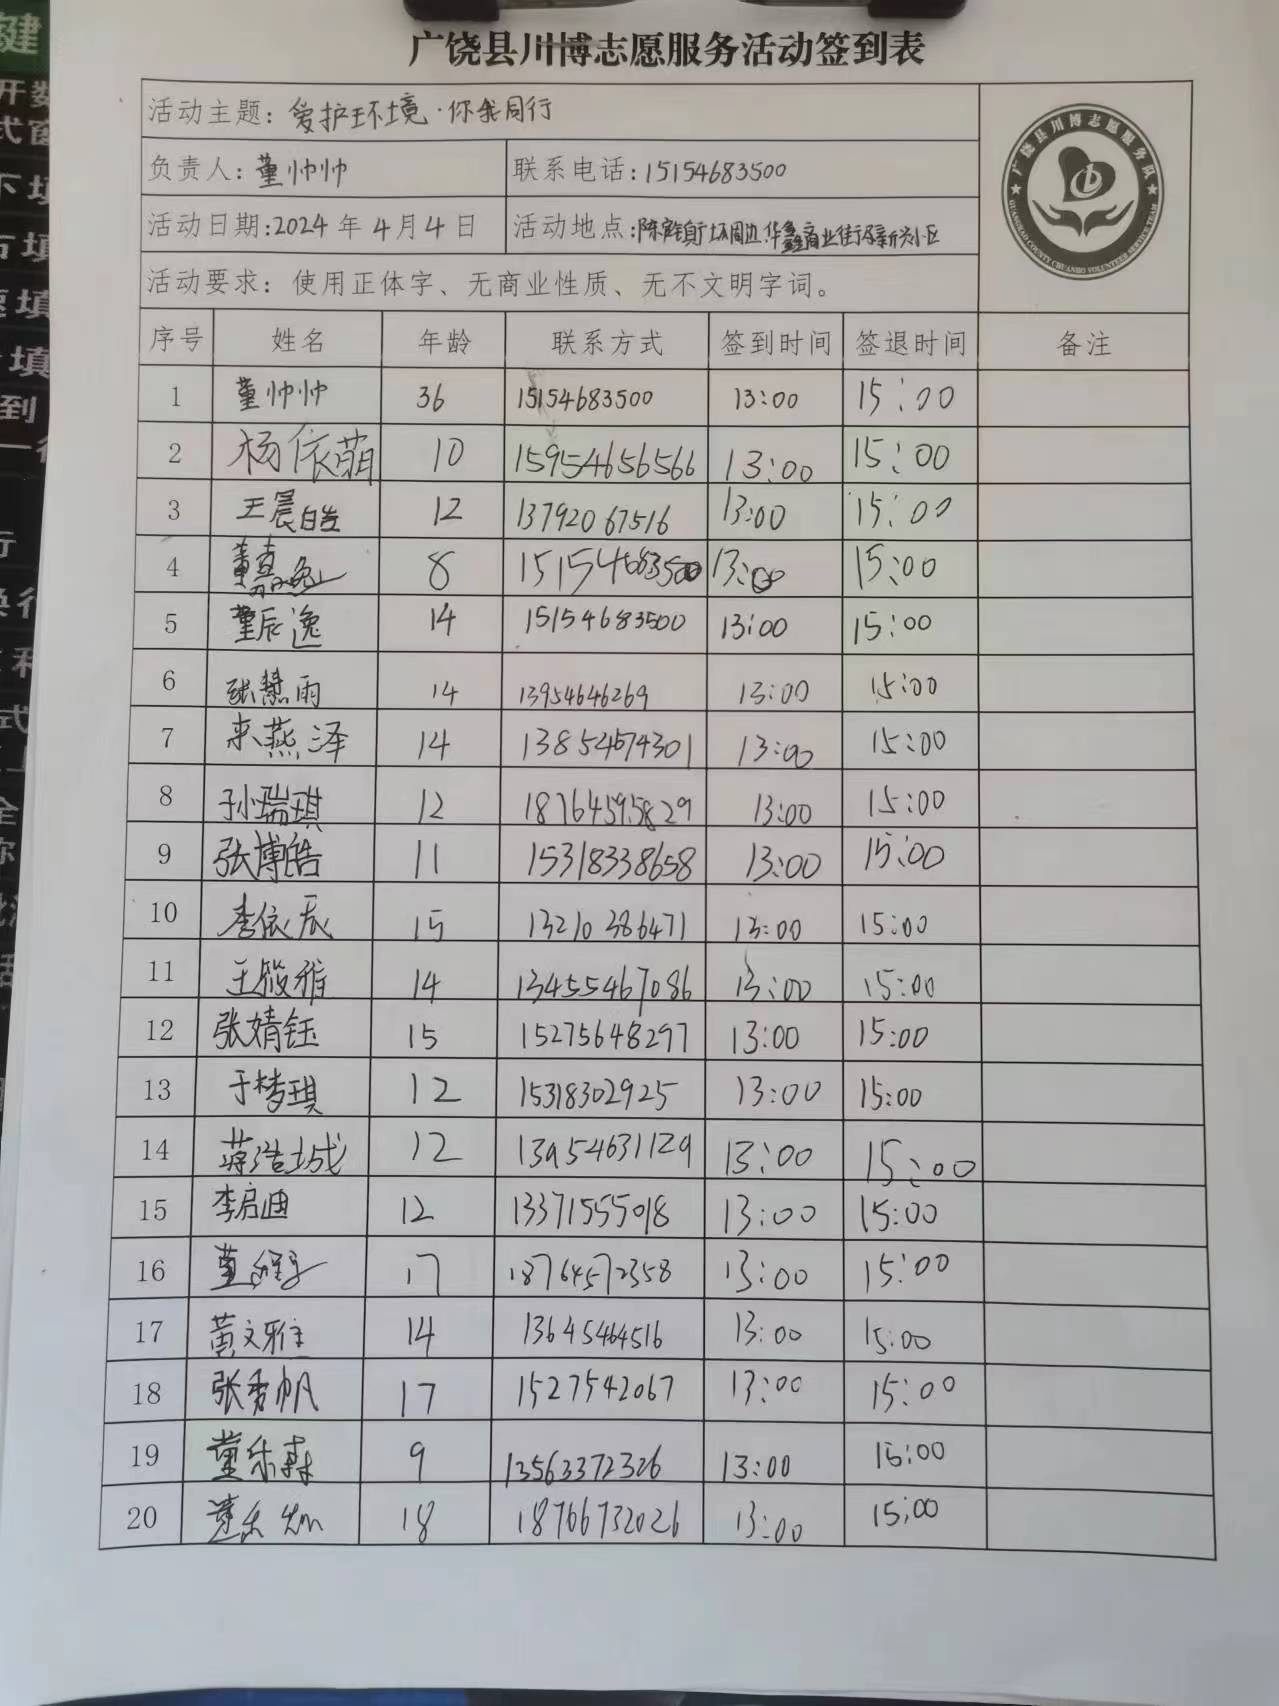 广饶县川博志愿服务活动签到表
活动主题：爱护环境·你我同行
负责人：董帅帅 联系电话：15154683500
活动日期：2024年4月4日 活动地点：周边华鑫商业街及新兴小区
活动要求：使用正体字、无商业性质、无不文明字词。
广饶县川博志愿服务队
GUANGRAO COUNTY CHUANBO VOLUNTEER SERVICE TEAM
序号 姓名 年龄 联系方式 签到时间 签退时间 备注
1 董帅帅 36 15154683500 13:00 15:00
2 杨依萌 10 15954656566 13:00 15:00
3 王晨皓 12 13792067516 13:00 15:00
4 董 8 15154683500 13:00 15:00
5 董辰逸 14 15154683500 13:00 15:00
6 张慧雨 14 13954646269 13:00 15:00
7 来燕泽 14 13854674301 13:00 15:00
8 孙瑞琪 12 18764595829 13:00 15:00
9 张博皓 11 15318338658 13:00 15:00
10 李依辰 15 13210386471 13:00 15:00
11 王筱雅 14 13455467086 13:00 15:00
12 张婧钰 15 15275648297 13:00 15:00
13 于梦琪 12 15318302925 13:00 15:00
14 蒋浩城 12 13954631129 13:00 15:00
15 李启迪 12 13371555018 13:00 15:00
16 董 17 18764572358 13:00 15:00
17 黄文雅 14 13645464516 13:00 15:00
18 张秀帆 17 1527542067 13:00 15:00
19 董乐森 9 13563372326 13:00 15:00
20 董乐 18 18766732026 13:00 15:00